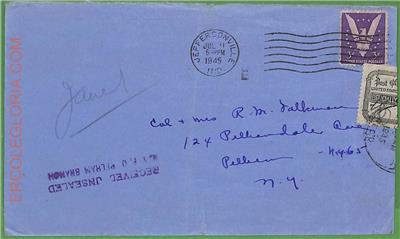 ERCOLEGLORIA.COM
JEFFERSONVILLE
JUL 11
5-PM
1945
IND.
UNITED STATES POSTAGE
Post
UNITED
Jared
Col & Mrs R. M. Falkenau
124 Pelhamdale Ave
Pelham - N.Y. 65
N.Y.
RECEIVED UNSEALED
N.Y. P.O. PELHAM BRANCH